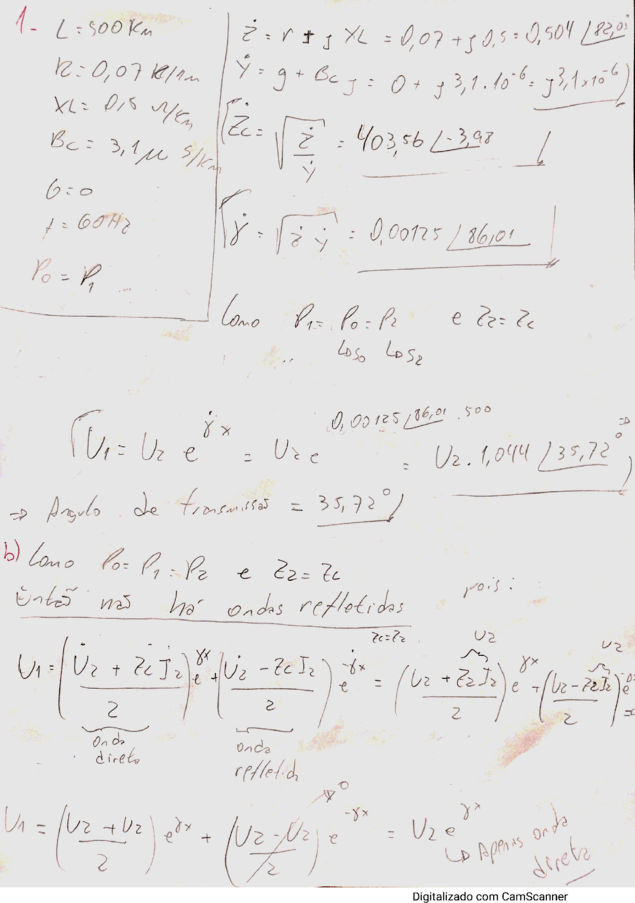 1- L = 500 Km
R = 0,07 Ω/Km
XL = 0,5 Ω/Km
Bc = 3,1 μ S/Km
G = 0
f = 60Hz
P0 = P1
ż = r + j XL = 0,07 + j 0,5 = 0,504 ∠82,0
ẏ = g + Bc j = 0 + j 3,1.10^-6 = j3,1x10^-6
Żc = √(ż/ẏ) = 403,56 ∠-3,98
γ̇ = √(ż ẏ) = 0,00125 ∠86,01
Como P1 = P0 = P2 e Z2 = Zc
U1 = U2 e^(γ̇x) = U2 e^(0,00125∠86,01 .500) = U2. 1,044 ∠35,72° ⇒
⇒ Angulo de transmissão = 35,72°
b) Como P0 = P1 = P2 e Z2 = Zc
Então não há ondas refletidas pois:
Zc=Z2 U2 U2
U1 = ((U̇2 + Żc İ2)/2) e^(γx) + ((U̇2 - Zc I2)/2) e^(-γx) = ((U2 + Z2 I2)/2) e^(γx) + ((U2 - Z2 I2)/2) e
onda direta onda refletida
U1 = ((U2 + U2)/2) e^(γx) + ((U2 - U2)/2) e^(-γx) = U2 e^(γx)
0
↳ Apenas onda direta
Digitalizado com CamScanner